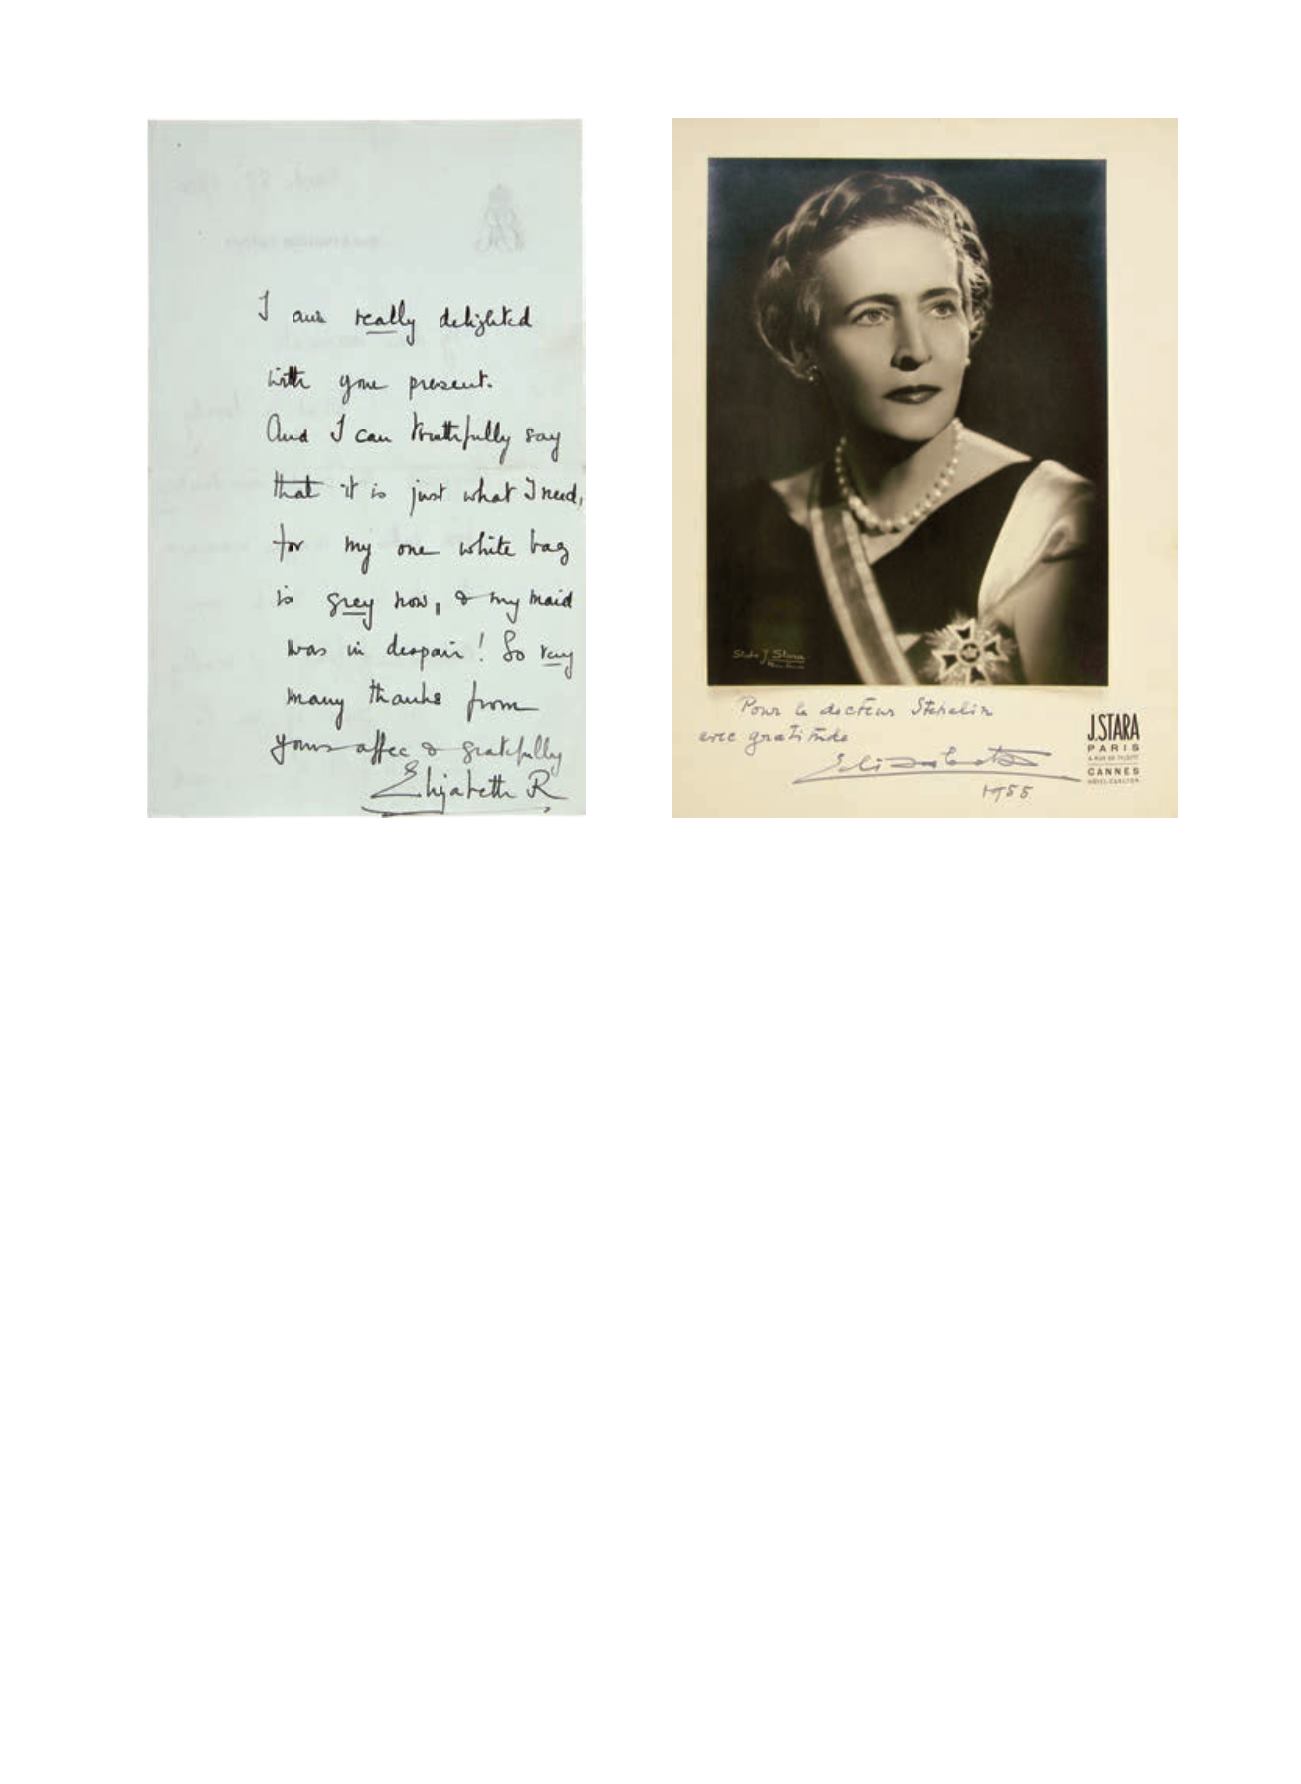 I am really delighted
with your present.
And I can truthfully say
that it is just what I need,
for my one white bag
is grey now, & my maid
was in despair! So very
many thanks from
yours affec & gratefully
Elizabeth R
Studio J. Stara
Pour le docteur Stehelin
avec gratitude
Elisabeth
1955
J.STARA
PARIS
CANNES
HÔTEL CARLTON